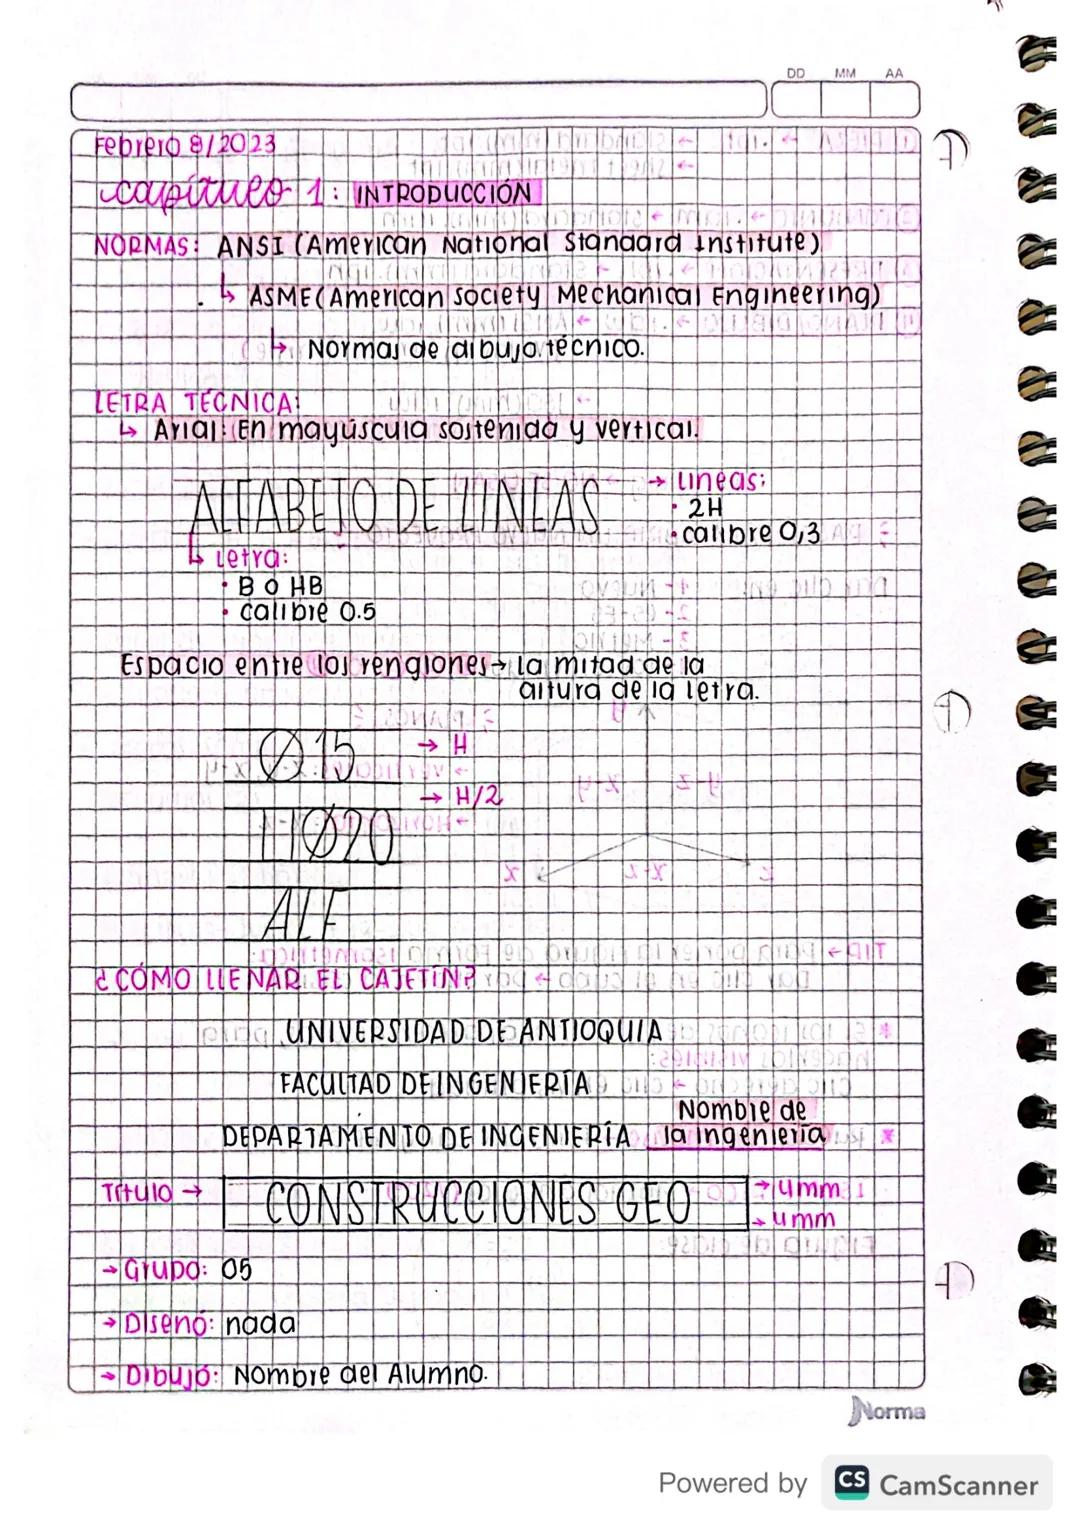 DD MM AA
Febrero 8/2023
capítulo 1: INTRODUCCIÓN
NORMAS: ANSI (American National Standard Institute)
↳ ASME (American Society Mechanical Engineering)
↳ Normas de dibujo técnico.
LETRA TÉCNICA:
↳ Arial: En mayúscula sostenida y vertical.
ALFABETO DE LINEAS
→ Lineas:
· 2H
· calibre 0,3
↳ Letra:
· B o HB
· calibre 0.5
Espacio entre los renglones → La mitad de la
altura de la letra.
Ø 15 → H
→ H/2
HØ20
ALF
¿CÓMO LLENAR EL CAJETÍN?
UNIVERSIDAD DE ANTIOQUIA
FACULTAD DE INGENIERÍA
DEPARTAMENTO DE INGENIERÍA Nombre de
la ingeniería
Título → CONSTRUCCIONES GEO → 4mm
→ 4mm
→ Grupo: 05
→ Diseñó: nada
→ Dibujó: Nombre del Alumno.
Norma
Powered by CS CamScanner